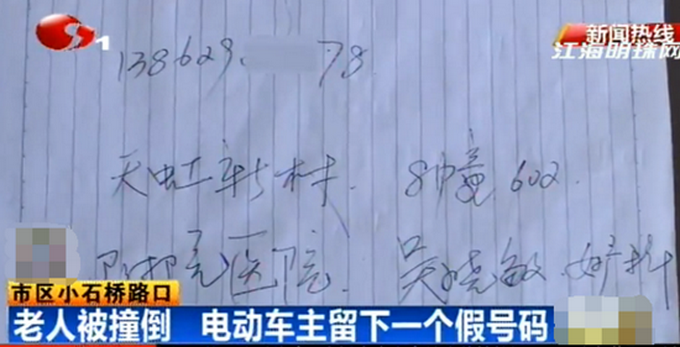 1
新闻热线
江海明珠网
138629 78
天虹新村. 8幢 602.
附院医院. 吴晓敏 妇科
市区小石桥路口
老人被撞倒 电动车主留下一个假号码